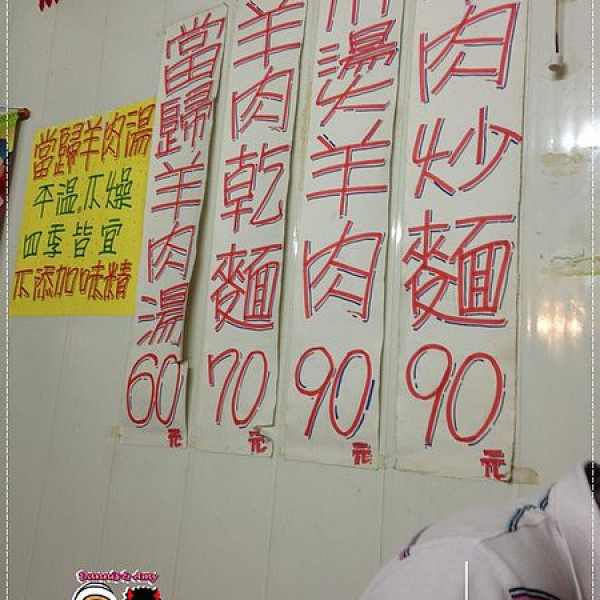 當歸羊肉湯
平溫不燥
四季皆宜
不添加味精
當歸羊肉湯
60元
羊肉乾麵
70元
燙羊肉
90元
肉炒麵
90元
Dannis & Amy